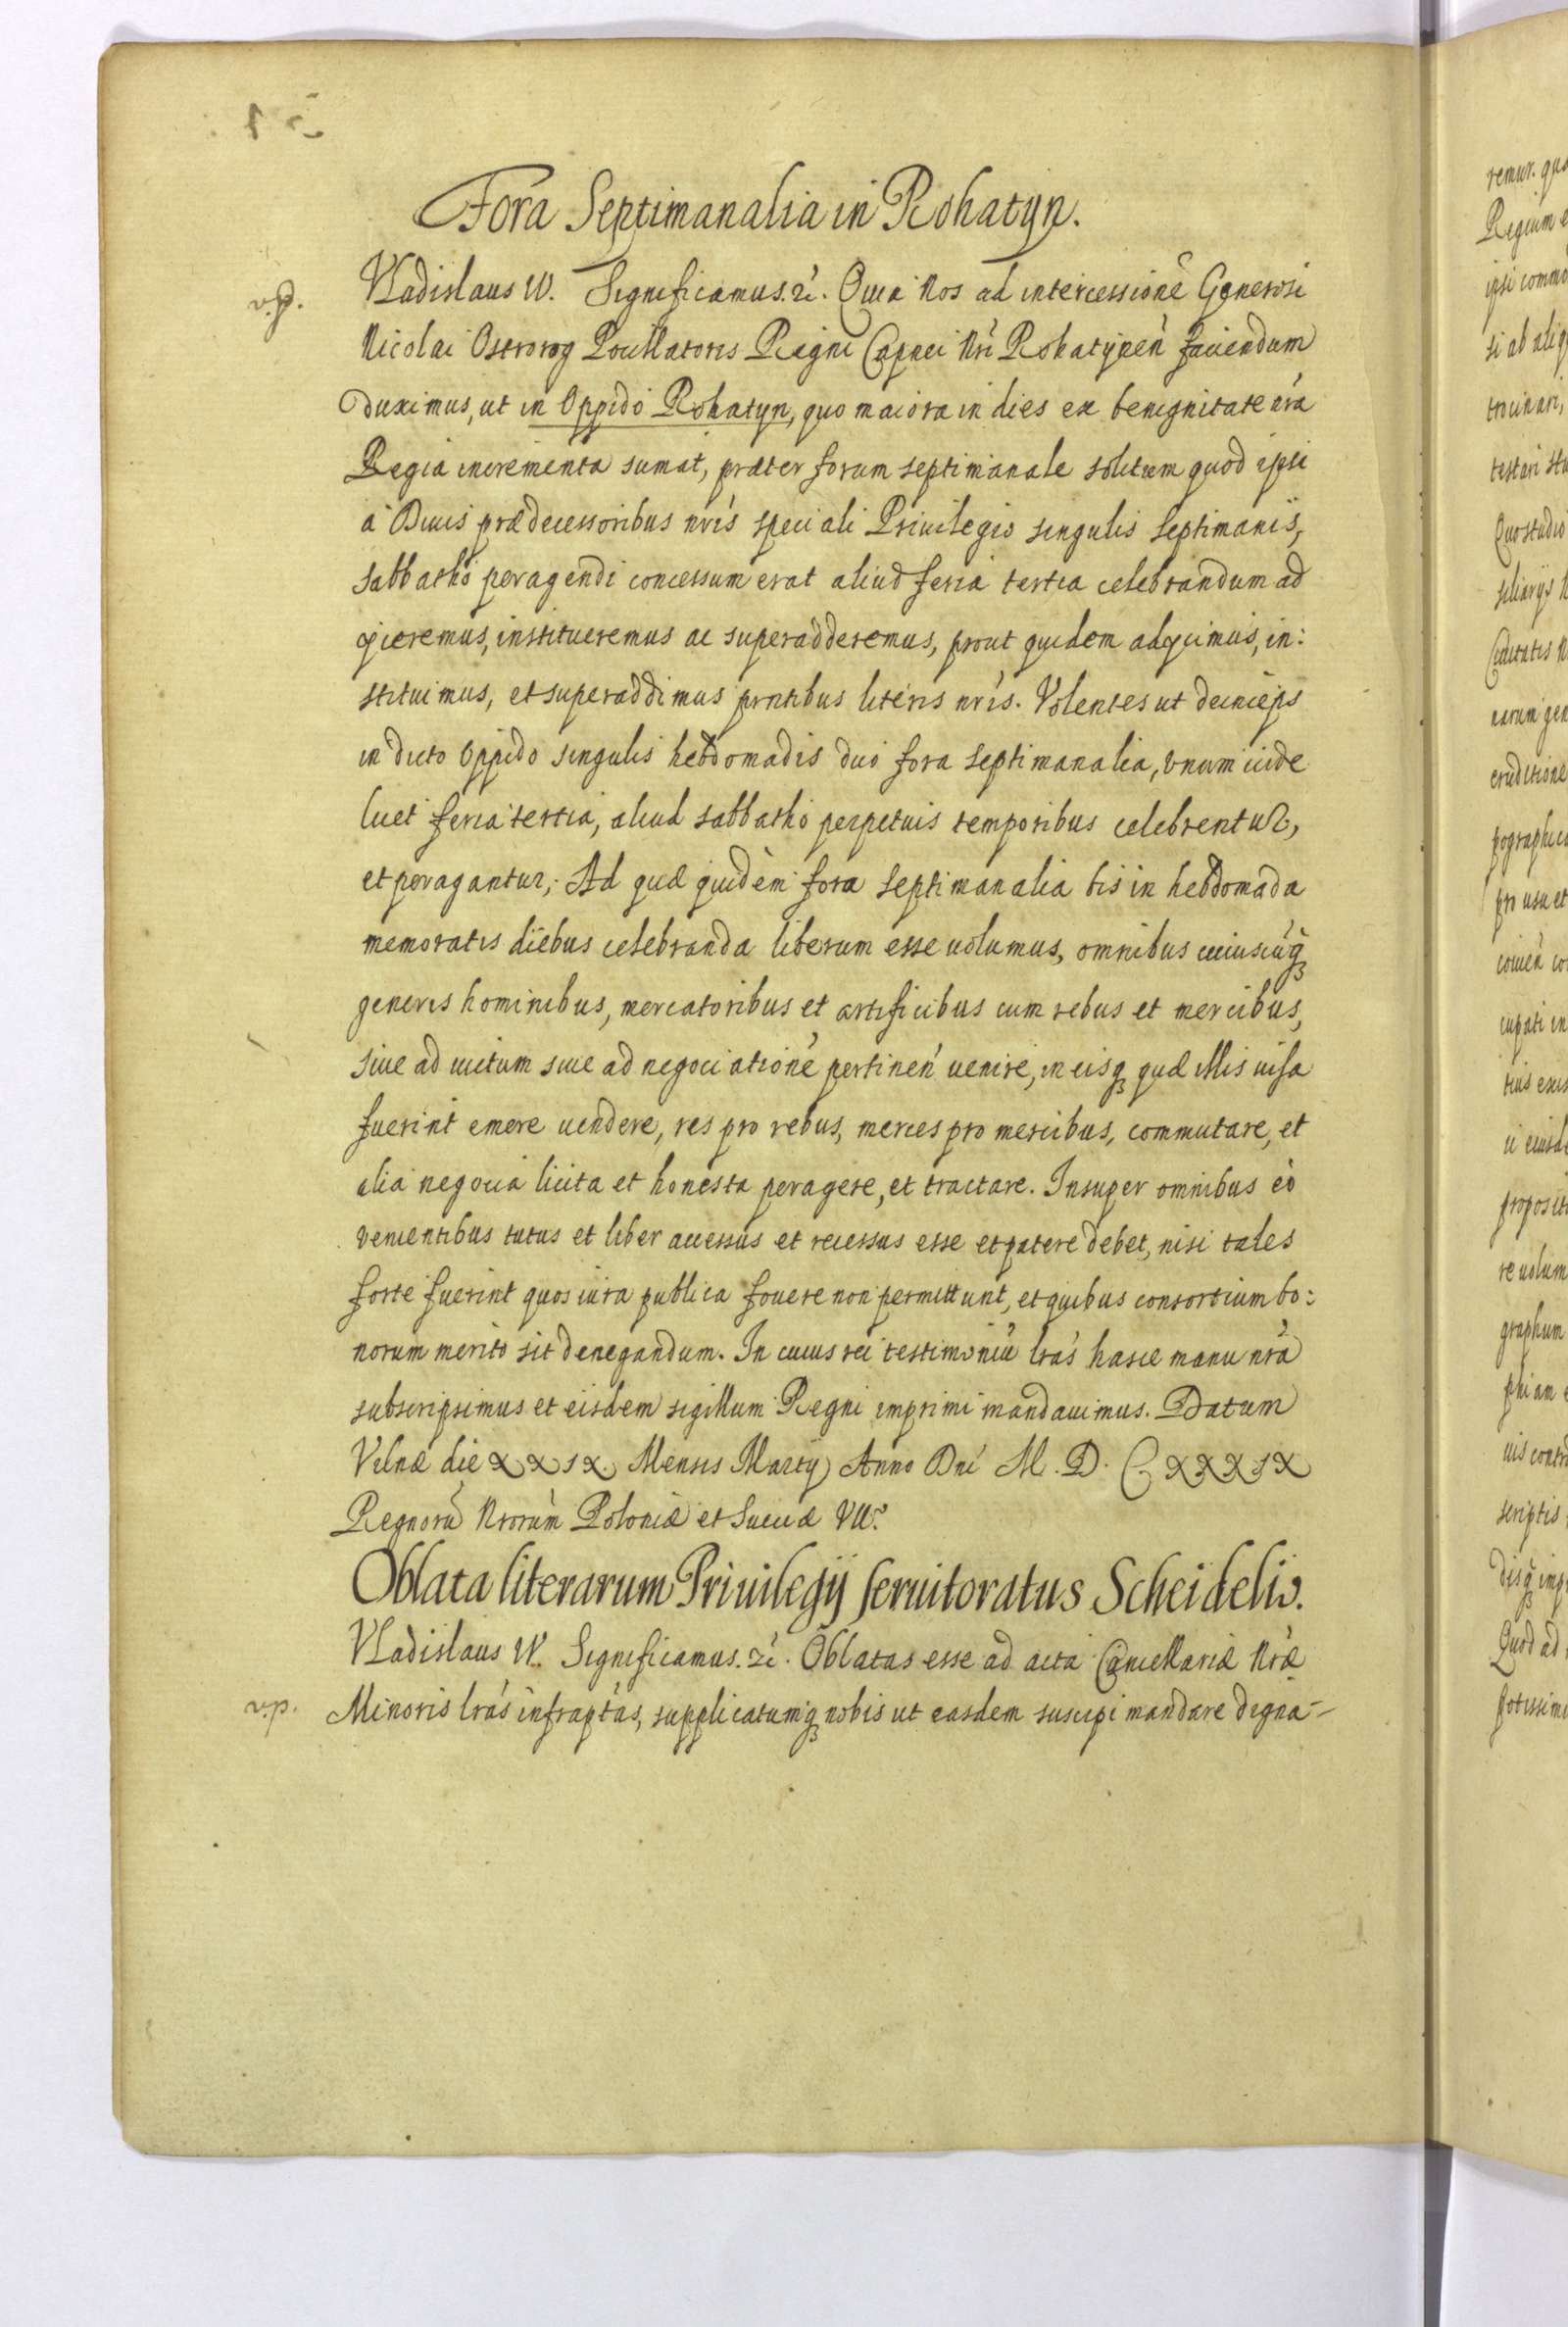 Fora Septimanalia in Rohatyn.
Vladislaus IV. Significamus. &c̃. Quia Nos ad intercessionẽ Generosi
Nicolai Ostrorog Pocillatoris Regni Capnei Nri Rohatynen̾ faciendum
duximus, ut in Oppido Rohatyn, quo maiora in dies ex benignitate nr̃a
Regia incrementa sumat, præter forum septimanale solitum quod ipsi
à Diuis prædecessoribus nrĩs speciali Priuilegio singulis Septimanis,
sabbatho peragendi concessum erat aliud feria tertia celebrandum ad
ijceremus, institueremus ac superadderemus, prout quidem adijcimus, in:
stituimus, et superaddimus prntibus literis nrĩs. Volentes ut deinceps
in dicto Oppido singulis hebdomadis duo fora septimanalia, vnum uide
licet feria tertia, aliud sabbatho perpetuis temporibus celebrentur,
et peragantur; Ad quæ quidem fora septimanalia bis in hebdomada
memoratis diebus celebranda liberum esse uolumus, omnibus cuiuscũq;
generis hominibus, mercatoribus et artificibus cum rebus et mercibus,
siue ad uictum siue ad negociationẽ pertinen̾ uenire, in eisq; quæ illis uisa
fuerint emere uendere, res pro rebus, merces pro mercibus, commutare, et
alia negocia licita et honesta peragere, et tractare. Insuper omnibus eò
venientibus tutus et liber accessus et recessus esse et patere debet, nisi tales
forte fuerint quos iura publica fouere non permittunt, et quibus consortium bo:
norum merito sit denegandum. In cuius rei testimoniũ lrãs hasce manu nrã
subscripsimus et eisdem sigillum Regni imprimi mandauimus. Datum
Vilnæ die XXIX. Mensis Martij Anno Dnĩ M. D. C XXXIX
Regnorũ Nrorum Poloniæ et Sueciæ VII.
Oblata literarum Priuilegij seruitoratus Scheidelio.
v.p.
Vladislaus IV. Significamus. &c̃. Oblatas esse ad acta Cancellariæ Nræ
Minoris lrãs infraptas, supplicatumq; nobis ut easdem suscipi mandare digna-